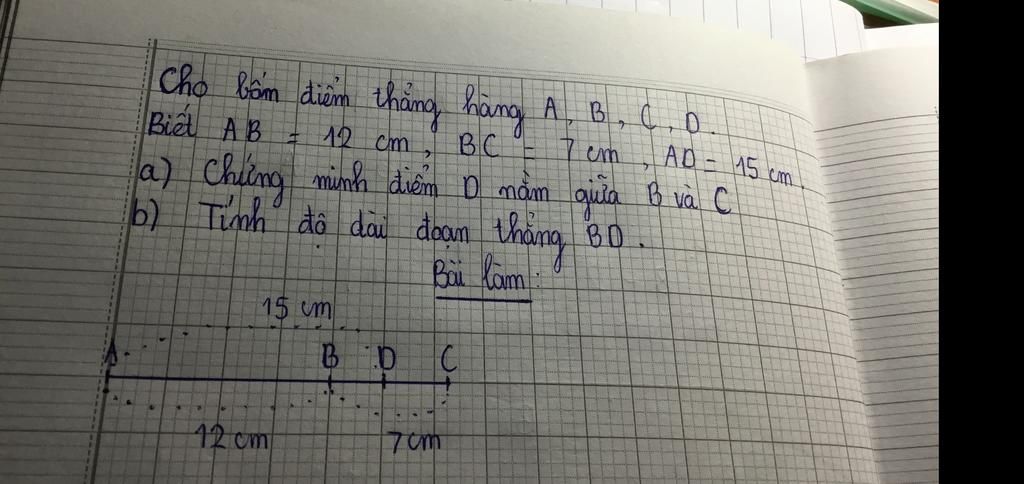 Cho bốn điểm thẳng hàng A, B, C, D.
Biết AB = 12 cm, BC = 7 cm, AD = 15 cm.
a) Chứng minh điểm D nằm giữa B và C
b) Tính độ dài đoạn thẳng BD.
Bài làm:
15 cm
A B D C
12 cm 7 cm